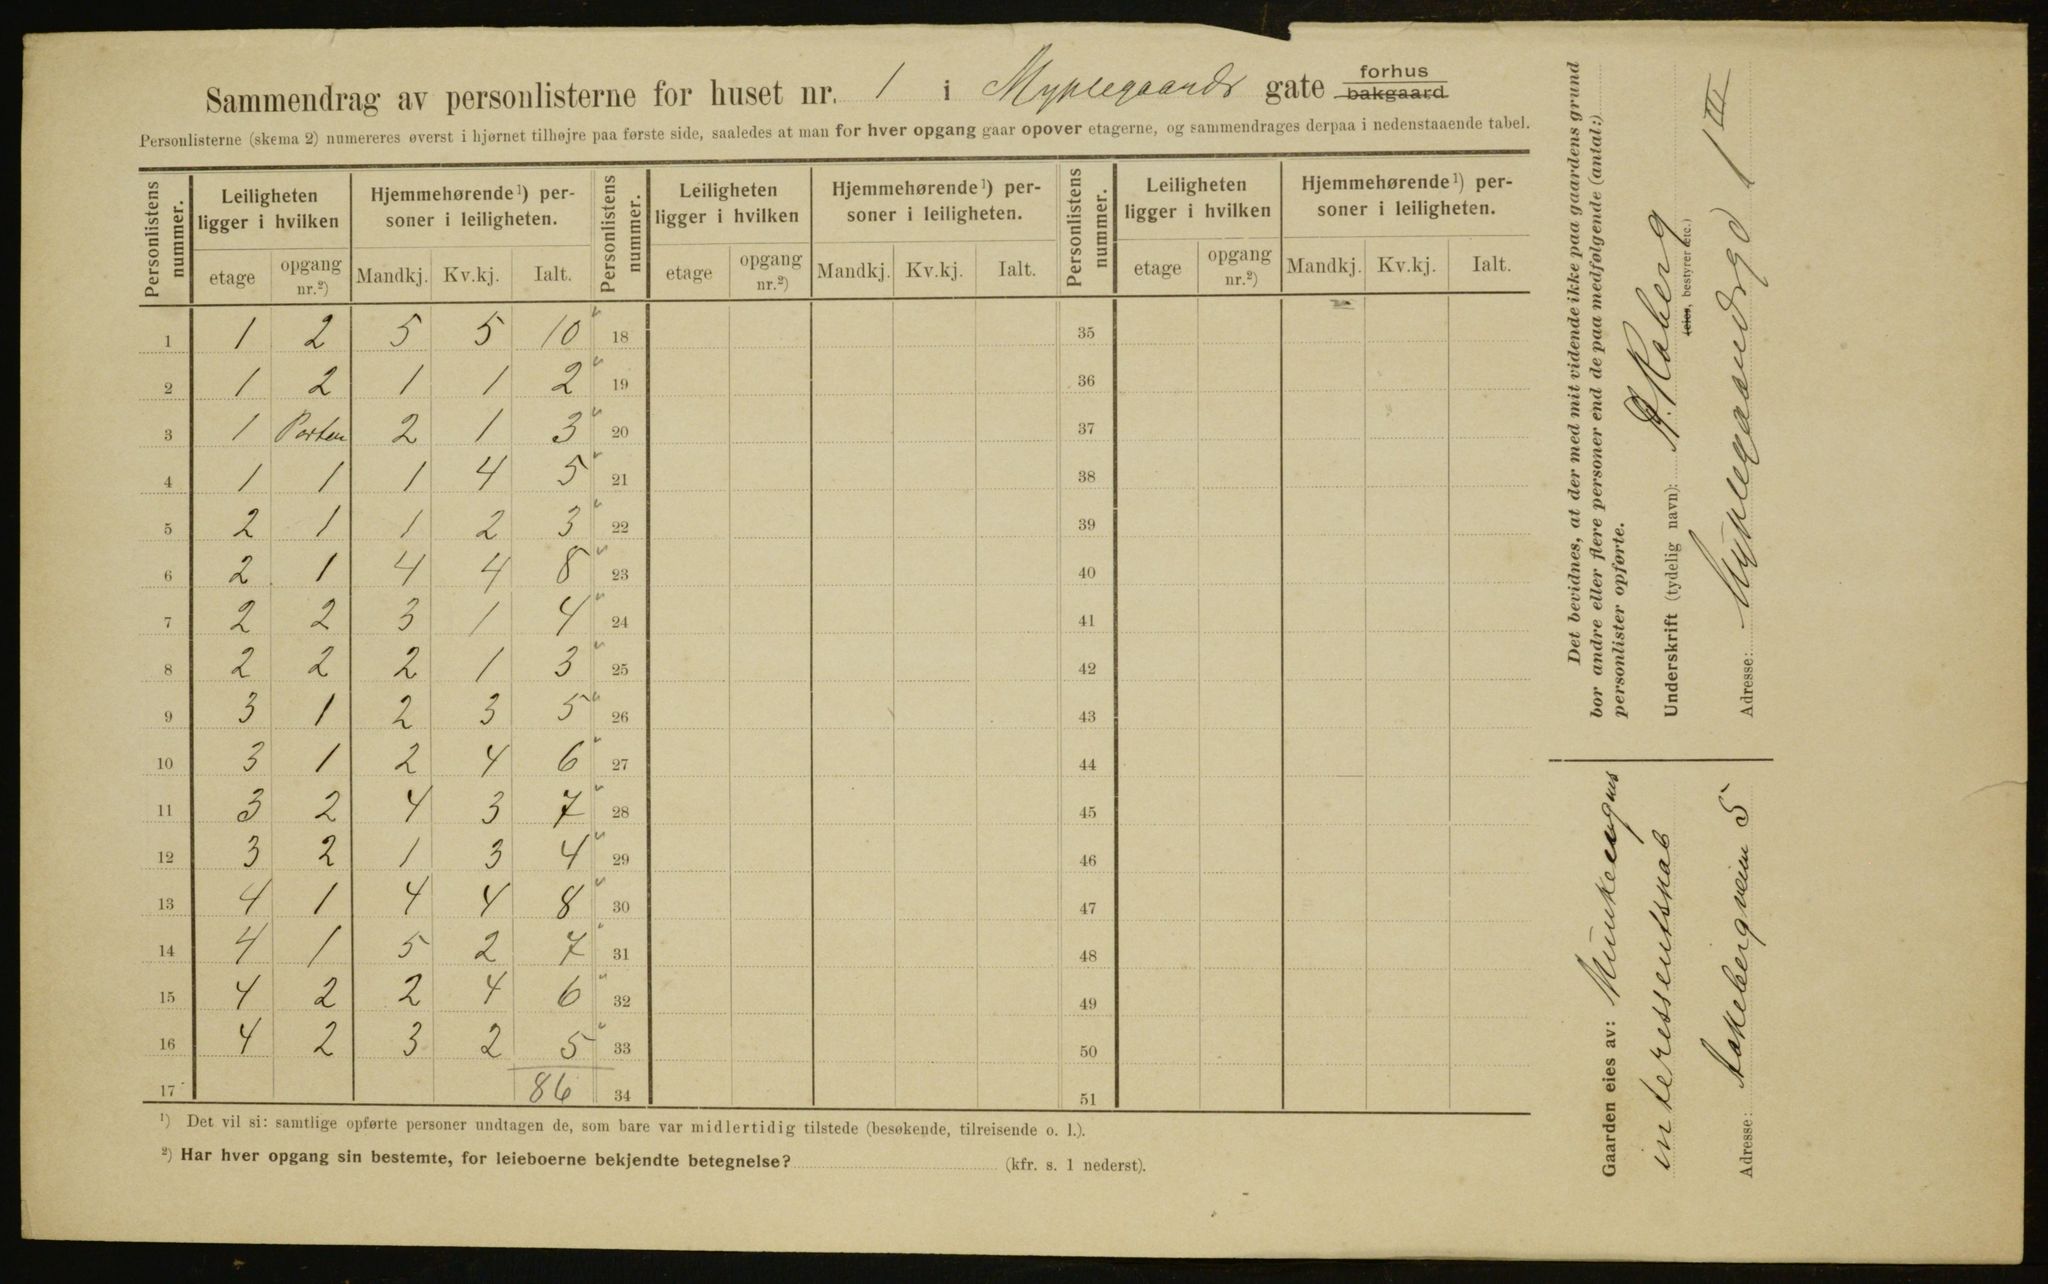 Sammendrag av personlisterne for huset nr. 1 i Myklegaards gate forhus bakgaard
Personlisterne (skema 2) numereres øverst i hjørnet tilhøjre paa første side, saaledes at man for hver opgang gaar opover etagerne, og sammendrages derpaa i nedenstaaende tabel.
Personlistens nummer. Leiligheten ligger i hvilken Hjemmehørende ¹) personer i leiligheten. Personlistens nummer. Leiligheten ligger i hvilken Hjemmehørende ¹) personer i leiligheten. Personlistens nummer. Leiligheten ligger i hvilken Hjemmehørende ¹) personer i leiligheten.
etage opgang nr.²) Mandkj. Kv.kj. Ialt. etage opgang nr.²) Mandkj. Kv.kj. Ialt. etage opgang nr.²) Mandkj. Kv.kj. Ialt.
1 1 2 5 5 10 18 35
2 1 2 1 1 2 19 36
3 1 Porten 2 1 3 20 37
4 1 1 1 4 5 21 38
5 2 1 1 2 3 22 39
6 2 1 4 4 8 23 40
7 2 2 3 1 4 24 41
8 2 2 2 1 3 25 42
9 3 1 2 3 5 26 43
10 3 1 2 4 6 27 44
11 3 2 4 3 7 28 45
12 3 2 1 3 4 29 46
13 4 1 4 4 8 30 47
14 4 1 5 2 7 31 48
15 4 2 2 4 6 32 49
16 4 2 3 2 5 33 50
17 86 34 51
¹) Det vil si: samtlige opførte personer undtagen de, som bare var midlertidig tilstede (besøkende, tilreisende o. l.).
²) Har hver opgang sin bestemte, for leieboerne bekjendte betegnelse? (kfr. s. 1 nederst).
Det bevidnes, at der med mit vidende ikke paa gaardens grund
bor andre eller flere personer end de paa medfølgende (antal:)
personlister opførte.
Underskrift (tydelig navn): R. Roberg
(eies, bestyrer etc.)
Adresse: Myklegaardsgd 1 III
Gaarden eies av: Munkeengens
interessentskab
Adresse: Aakebergveien 5